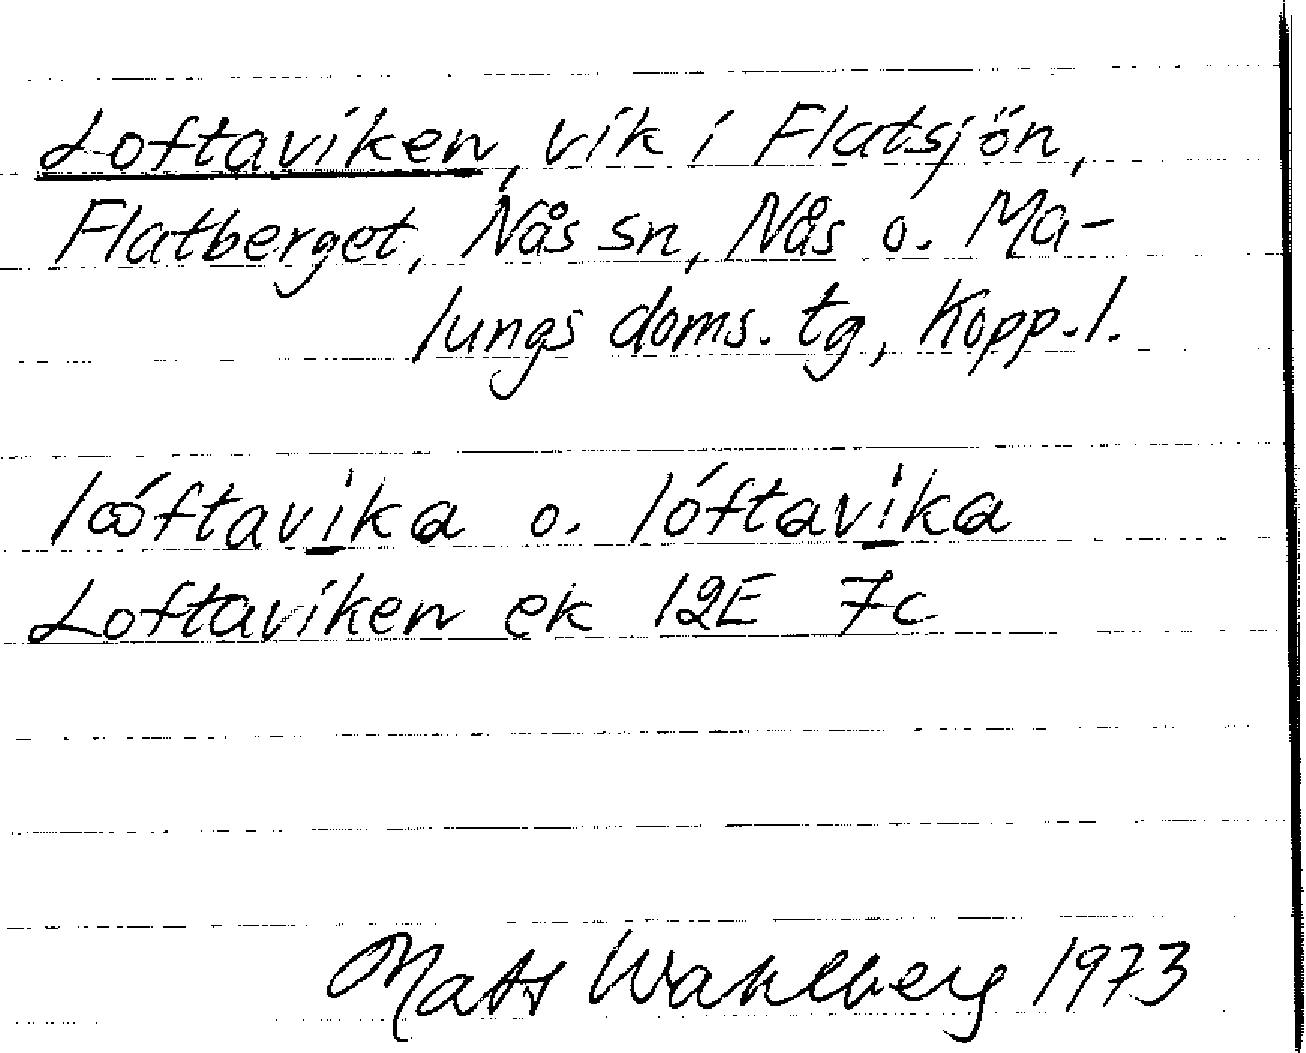 Loftaviken, vik i Flatsjön,
Flatberget, Nås sn, Nås o. Ma-
lungs doms. tg, Kopp.l.
lꝏ́ftavi̲ka o. lóftavi̲ka
Loftaviken ek 12E 7c
Mats Wahlberg 1973